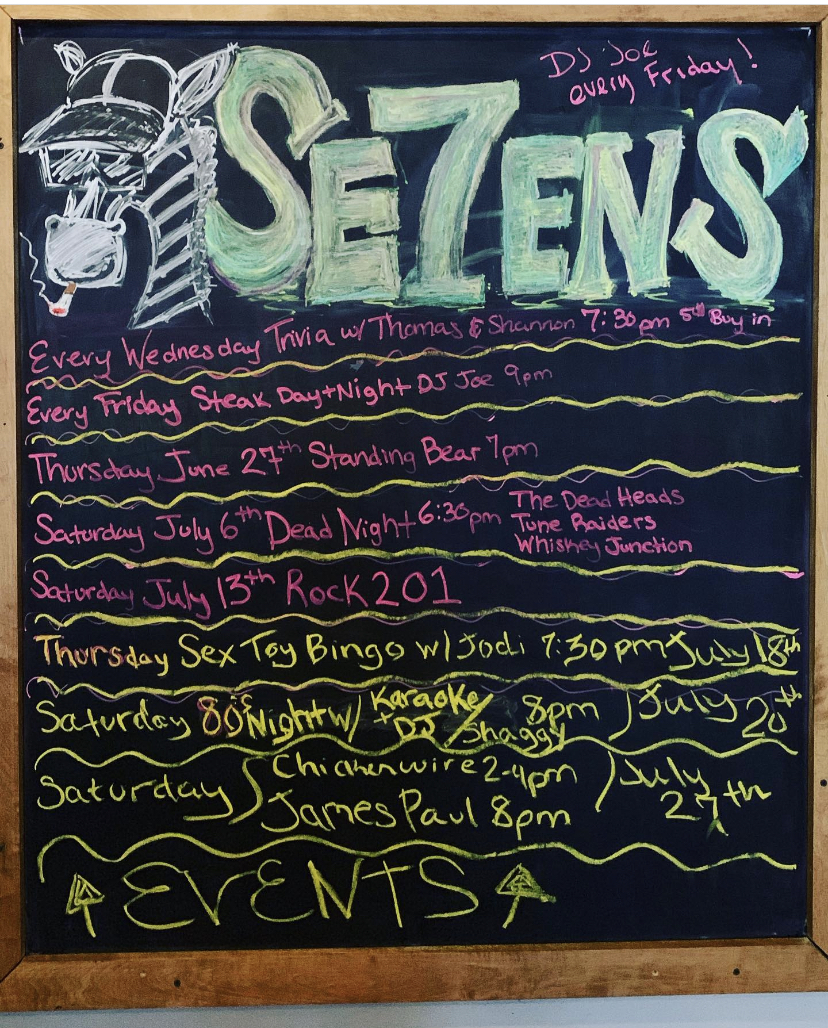 DJ Joe
every Friday!
SE7ENS
Every Wednesday Trivia w/ Thomas & Shannon 7:30pm 5$ Buy in
Every Friday Steak Day + Night DJ Joe 9pm
Thursday June 27th Standing Bear 7pm
Saturday July 6th Dead Night 6:30pm
The Dead Heads
Tune Raiders
Whiskey Junction
Saturday July 13th Rock 201
Thursday Sex Toy Bingo w/ Jodi 7:30pm July 18th
Saturday 80's Night w/ Karaoke + DJ / Shaggy 8pm / July 20th
Saturday
Chickenwire 2-4pm
James Paul 8pm
July 27th
EVENTS